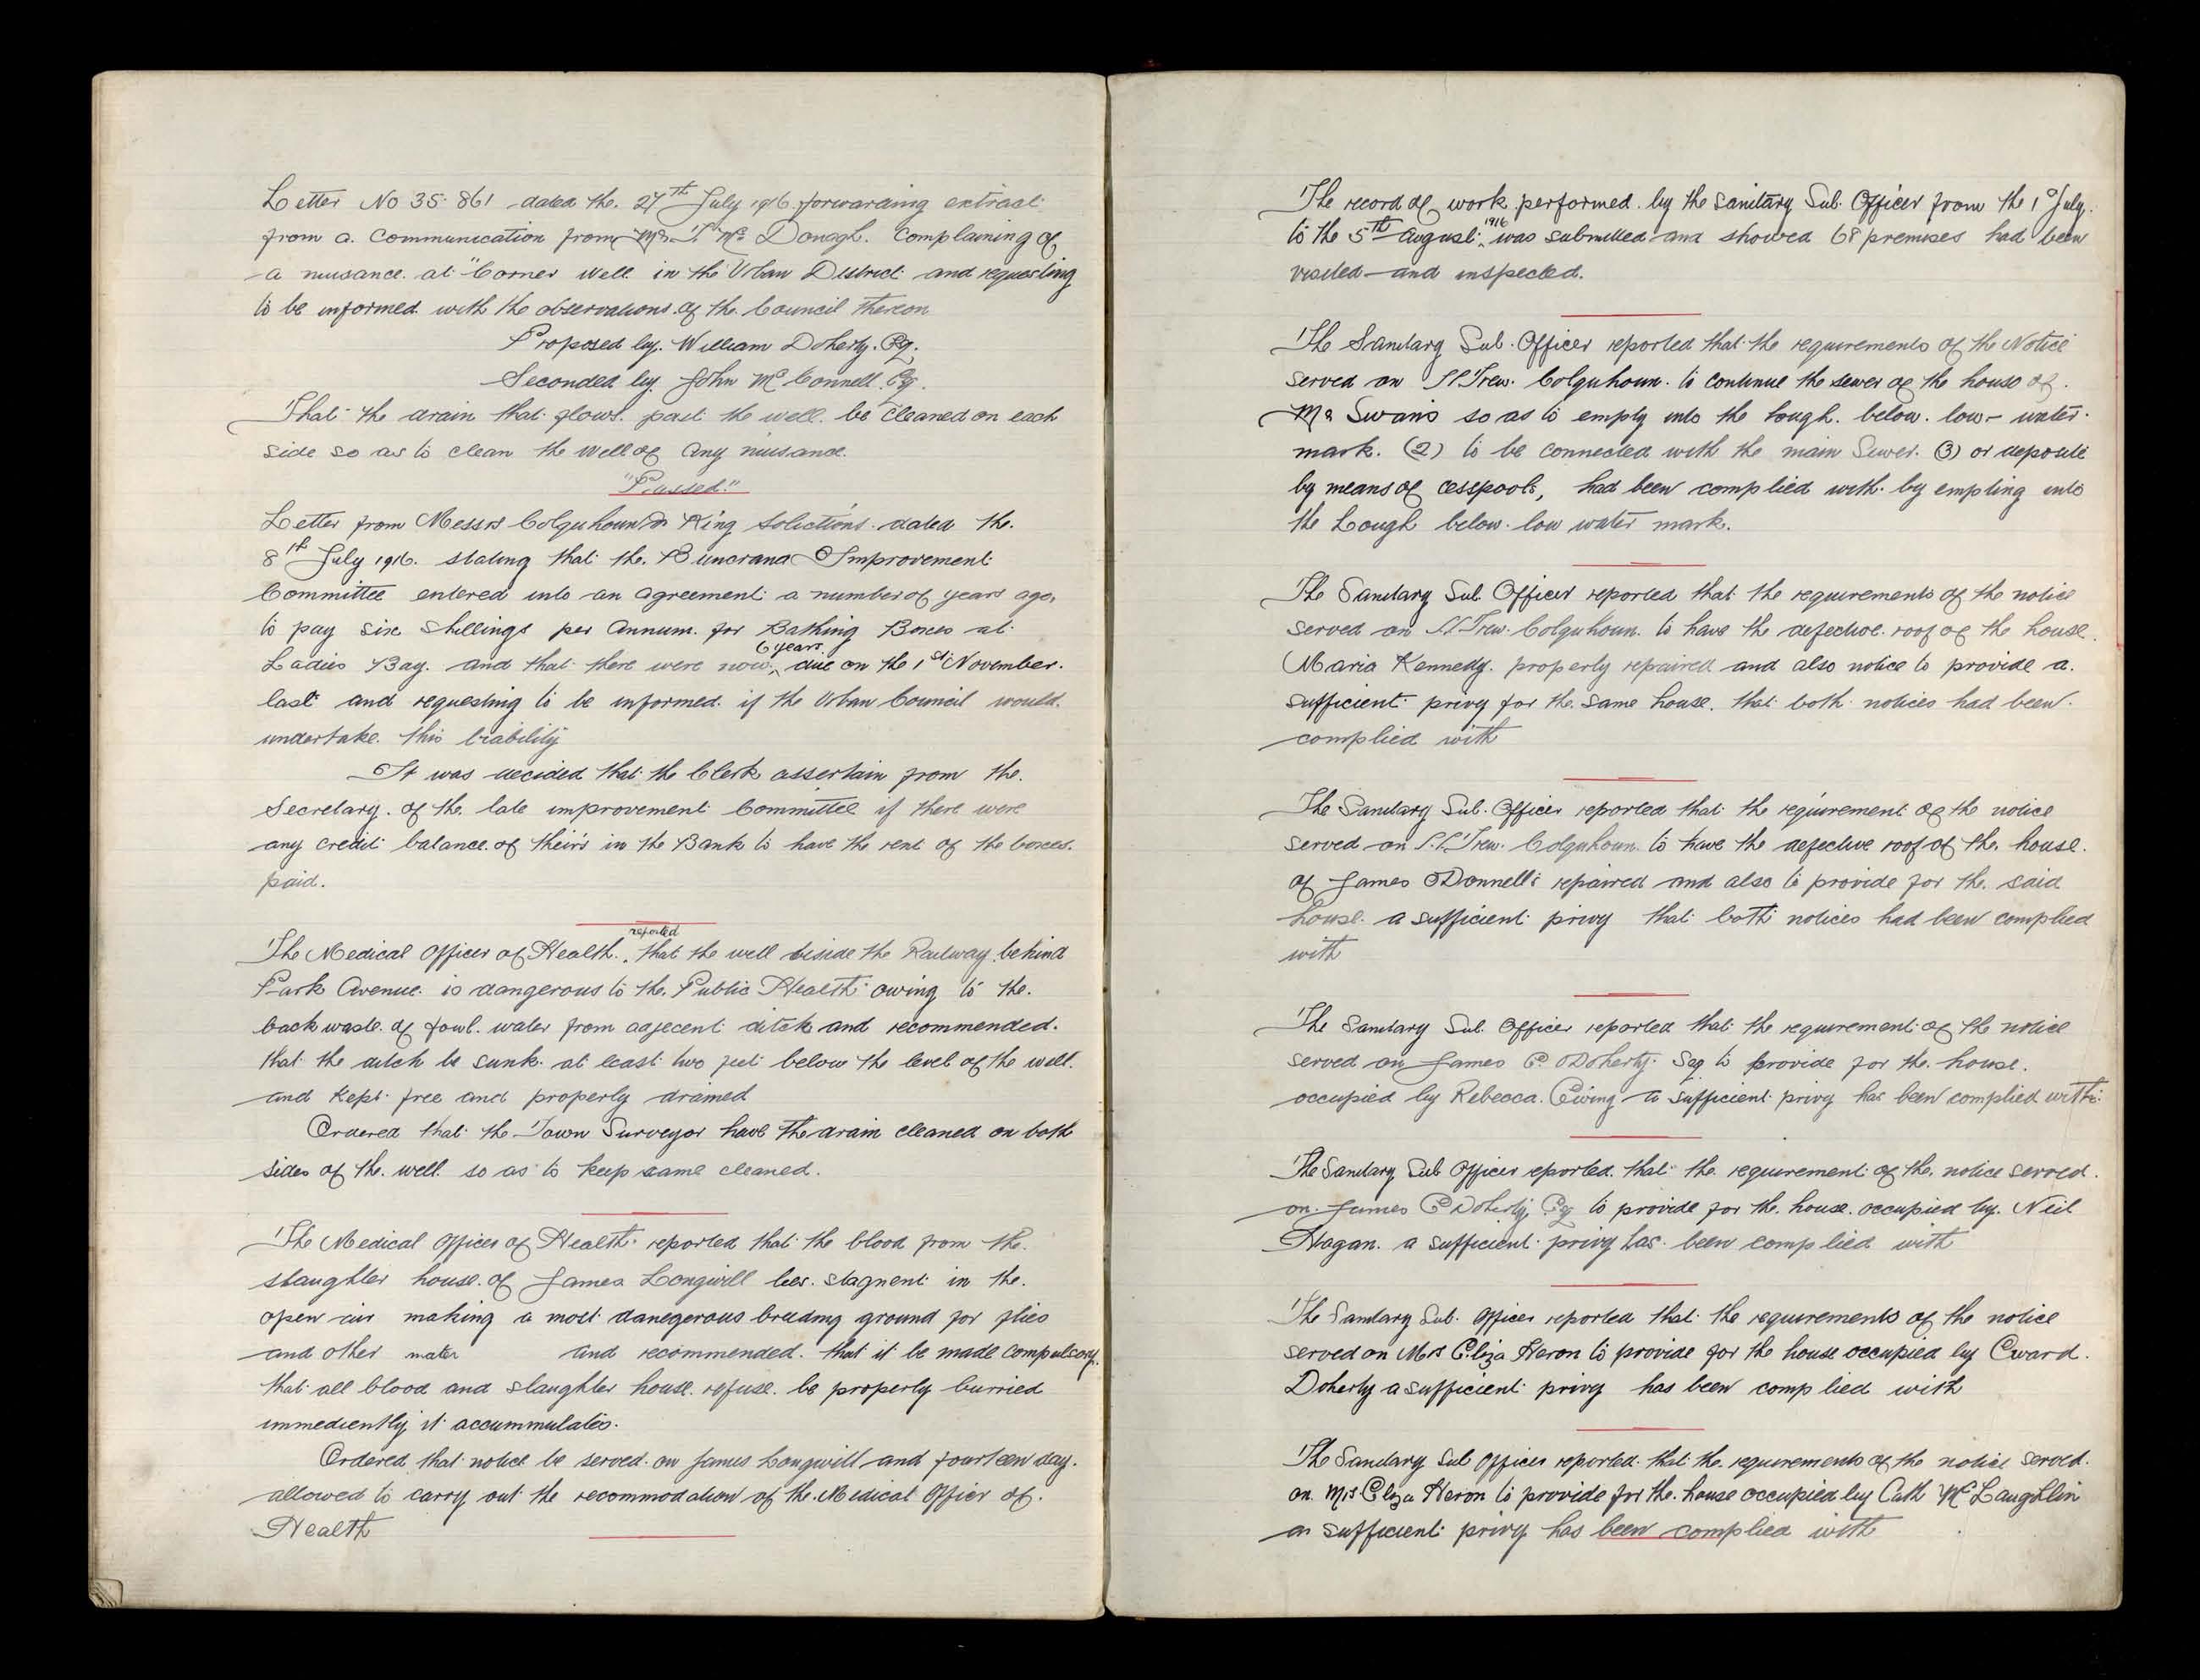 Letter No 35.861 dated the 27th July 1916 forwarding extract
from a communication from Mr. T. Mc Donagh. Complaining of
a nuisance at "Corner Well in the Urban District and requesting
to be informed with the observations of the Council thereon
Proposed by William Doherty. Esq.
Seconded by John McConnell. Esq.
That the drain that flows past the well be cleaned on each
side so as to clean the well of any nuisance.
"Passed"
Letter from Messrs Colquhoun & King Solictions dated the
8th July 1916. stating that the Buncrana Improvement
Committee entered into an agreement a number of years ago,
to pay six shillings per annum for Bathing Boxes at
Ladies Bay. and that there were now 6 years due on the 1st November.
last and requesting to be informed if the Urban Council would
undertake this liability
It was decided that the Clerk assertain from the
Secretary of the late improvement Committee if there were
any credit balance of their's in the Bank to have the rent of the boxes.
paid.
The Medical Officer of Health reported that the well beside the Railway behind
Park Avenue is dangerous to the Public Health owing to the
back waste of fowl water from adjecent ditch and recommended.
that the ditch be sunk at least two feet below the level of the well.
and kept free and properly drained
Ordered that the Town Surveyor have the drain cleaned on both
sides of the well so as to keep same cleaned.
The Medical Officer of Health reported that the blood from the
slaughter house of James Longwill lies stagnent in the
open air making a most danegerous breading ground for flies
and other mater and recommended that it be made compulsory.
that all blood and slaughter house refuse be properly burried
immediently it accummulates.
Ordered that notice be served on James Longwill and fourteen day.
allowed to carry out the recommodation of the Medical Offier of.
Health
The record of work performed by the Sanitary Sub. Officer from the 1st July.
to the 5th August 1916 was submitted and showed 68 premises had been
visited and inspected.
The Sanitary Sub. Officer reported that the requirements of the Notice
served on Trew. Colquhoun. to continue the sewer of the house of.
Mr Swan's so as to empty into the lough below low - water
mark. (2) to be connected with the main Sewer. (3) or deposite
by means of cesspools, had been complied with by empting into
the Lough below low water mark.
The Sanitary Sub Officer reported that the requirements of the notice
served on Trew. Colquhoun. to have the defective roof of the house.
Maria Kennedy. properly repaired and also notice to provide a.
sufficient privy for the same house. that both notices had been
complied with
The Sanitary Sub. Officer reported that the requirement of the notice
served on Trew. Colquhoun. to have the defective roof of the house.
of James ODonnell's repaired and also to provide for the said
house a sufficient privy that both notices had been complied
with
The Sanitary Sub Officer reported that the requirement of the notice
served on James P. ODoherty. to provide for the house.
occupied by Rebecca Ewing a sufficient privy has been complied with
The Sanitary Sub Officer reported that the requirement of the notice served.
on James P ODoherty Esq to provide for the house occupied by Neil
Hagan. a sufficient privy has been complied with
The Sanitary Sub. Officer reported that the requirements of the notice
served on Mrs Eliza Heron to provide for the house occupied by Edward.
Doherty a sufficient privy has been complied with
The Sanitary Sub Officer reported that the requirements of the notice served.
on Mrs Eliza Heron to provide for the house occupied by Cath McLaughlin
a sufficient privy has been complied with